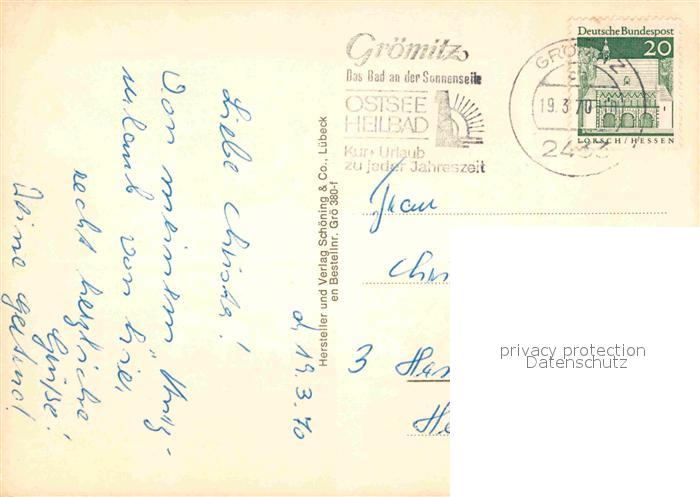 Grömitz
Das Bad an der Sonnenseite
OSTSEE
HEILBAD
Kur + Urlaub
zu jeder Jahreszeit
GRÖMITZ
19.3.70
2433
Deutsche Bundespost
20
LORSCH/HESSEN
d, 19.3.70
Liebe Christa!
Von meinem
urlaub von hier,
recht herzliche
Grüße!
Deine
Hersteller und Verlag Schöning & Co., Lübeck
en Bestellnr. Grö 380-f
Frau
3
privacy protection
Datenschutz